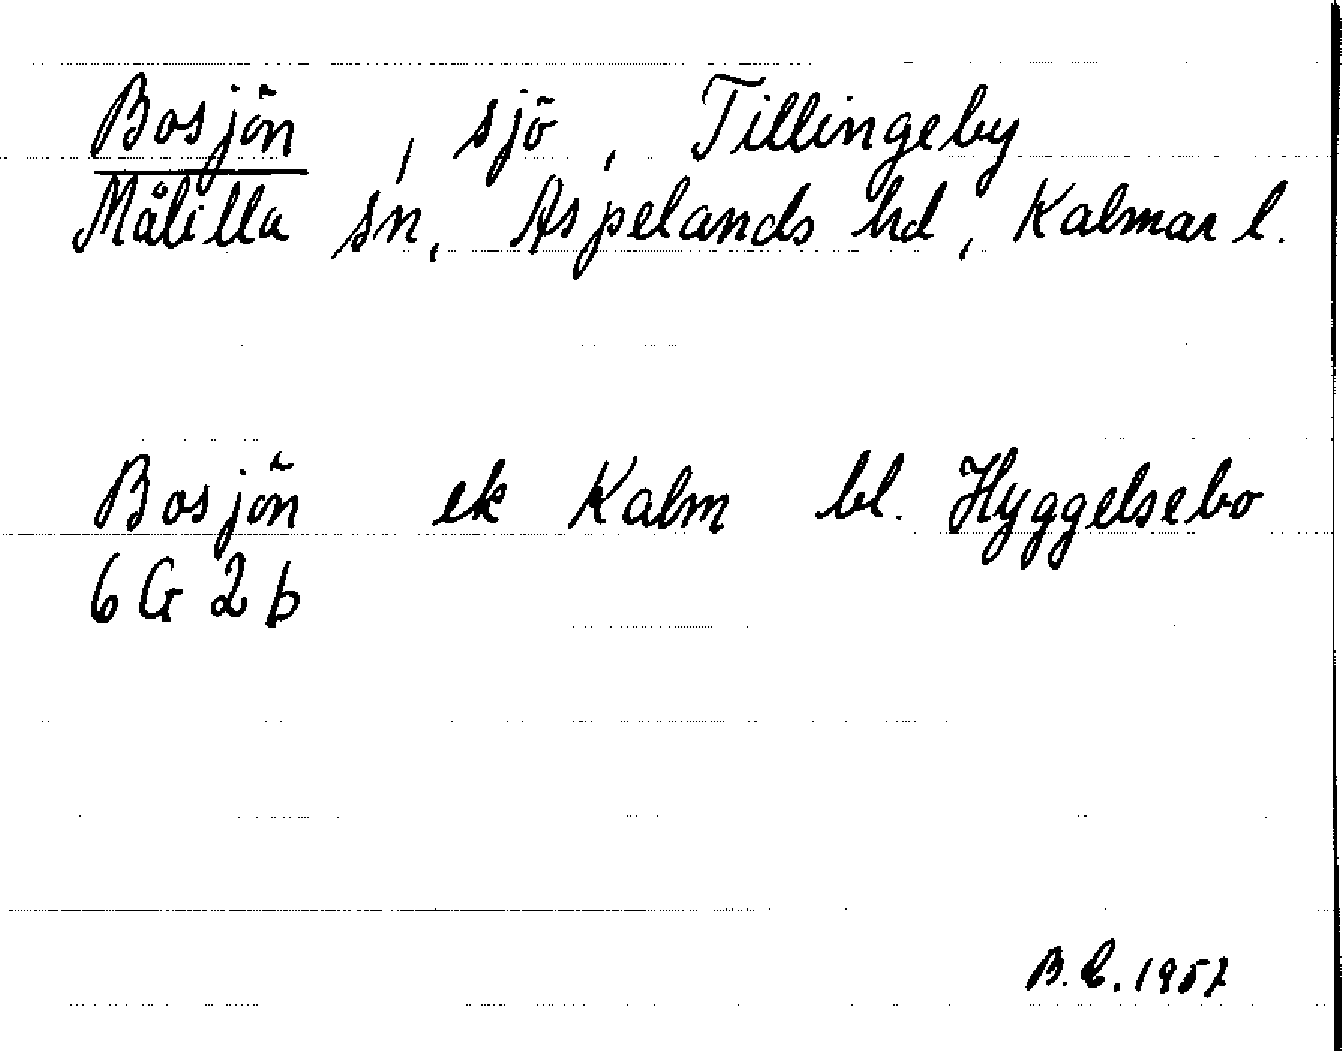 Bosjön, sjö, Tillingeby
Målilla sn, Aspelands hd, Kalmar l.
Bosjön ek Kalm bl. Hyggelsebo
6 G 2 b
B.C. 1957